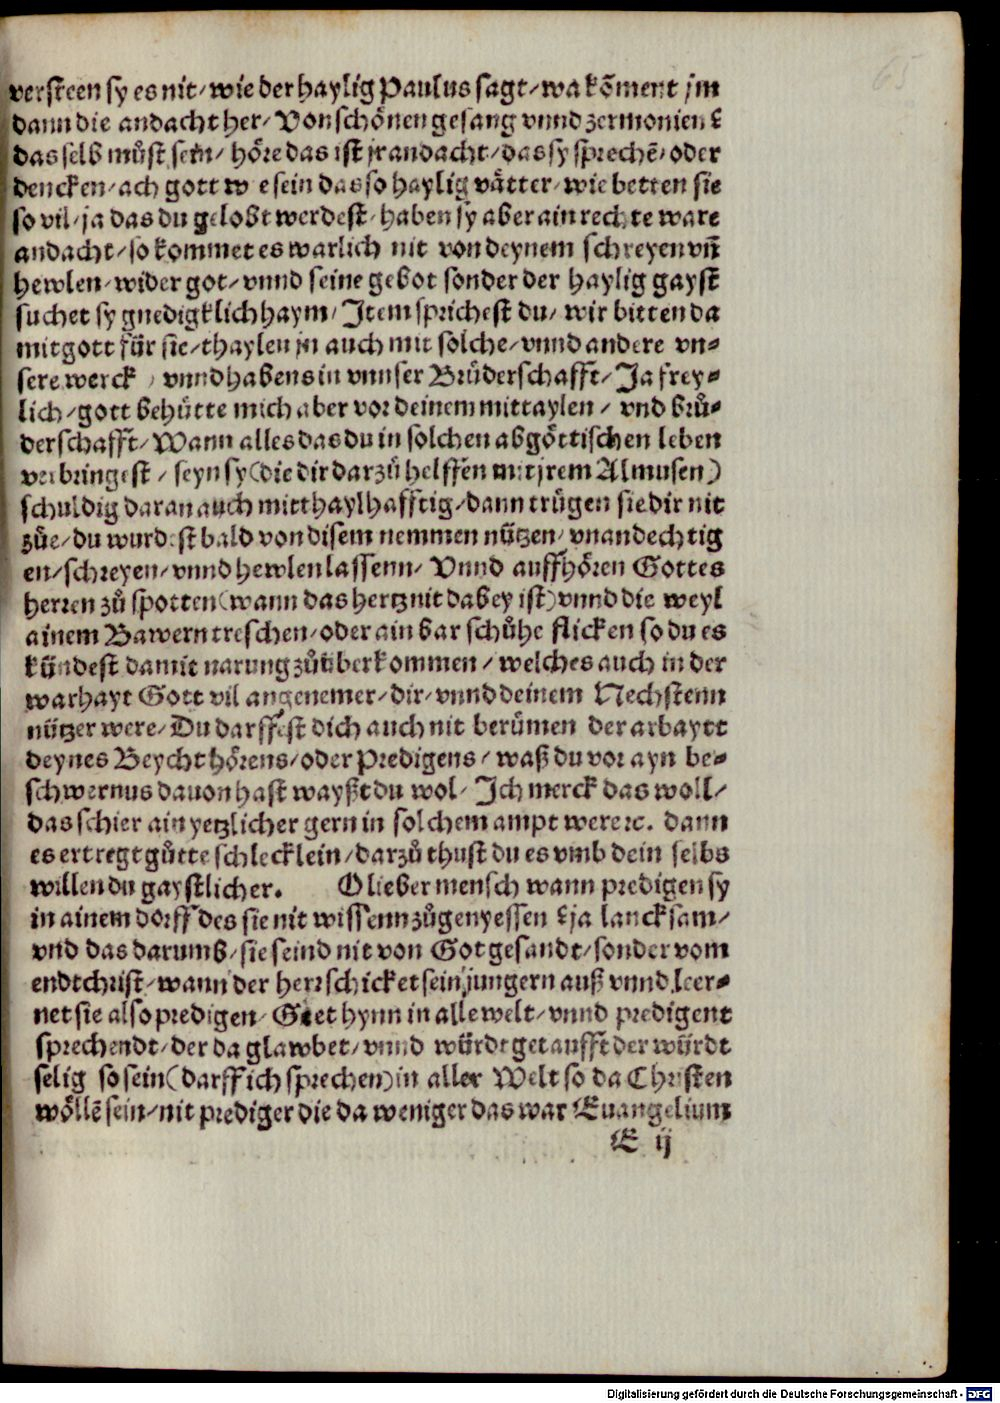 65
versteen sy es nit/ wie der haylig Paulus sagt/ wa kõment jm
dann die andacht her/ Von schönen gesang vnnd zermonien?
das selb můst sein/ höre das ist jr andacht/ das sy sprechẽ/ oder
dencken/ ach gott w e sein das so haylig våtter/ wie betten sie
so vil/ ja das du gelobt werdest/ haben sy aber ain rechte ware
andacht/ so kommet es warlich nit von deynem schreyen vñ
hewlen/ wider got/ vnnd seine gebot sonder der haylig gayst
suchet sy gnedigklich haym/ Item sprichest du/ wir bitten da
mit gott für sie/ thaylen jn auch mit solche/ vnnd andere vn⸗
sere werck / vnnd habens in vnnser Brůderschafft/ Ja frey⸗
lich/ gott behůtte mich aber vor deinem mittaylen/ vnd brů⸗
derschafft/ Wann alles das du in solchen abgöttischen leben
verbringest/ seyn sy (die dir darzů helffen mit jrem Almusen)
schuldig daran auch mitthaylhafftig/ dann trůgen sie dir nit
zůe/ du wurdest bald von disem nemmen nützen/ vnandechtig
en/ schreyen/ vnnd hewlen lassenn/ Vnnd auffhören Gottes
herren zů spotten (wann das hertz nit dabey ist) vnnd die weyl
ainem Bawern treschen/ oder ain bar schůhe flicken so du es
kündest damit narung zů überkommen/ welches auch in der
warhayt Gott vil angenemer/ dir/ vnnd deinem Nechstenn
nützer were/ Du darffest dich auch nit berůmen der arbaytt
deynes Beycht hörens/ oder Predigens/ waß du vor ayn be⸗
schwernus dauon hast wayßt du wol/ Ich merck das woll/
das schier ain yetzlicher gern in solchem ampt were ꝛc. dann
es ertregt gůtte schlecklein/ darzů thust du es vmb dein selbs
willen du gaystlicher. O lieber mensch wann predigen sy
in ainem dorff des sie nit wissenn zůgenyessen? ja lancksam/
vnd das darumb/ sie seind nit von Got gesandt/ sonder vom
endtchrist/ wann der herr schicket sein jungern auß vnnd leer⸗
net sie also predigen/ Geet hynn in alle welt/ vnnd predigent
sprechendt/ der da glawbet/ vnnd würdt getaufft der würdt
selig so sein (darff ich sprechen) in aller Welt so da Christen
wöllẽ sein/ nit prediger die da weniger das war Euangelium
E ij
Digitalisierung gefördert durch die Deutsche Forschungsgemeinschaft - DFG